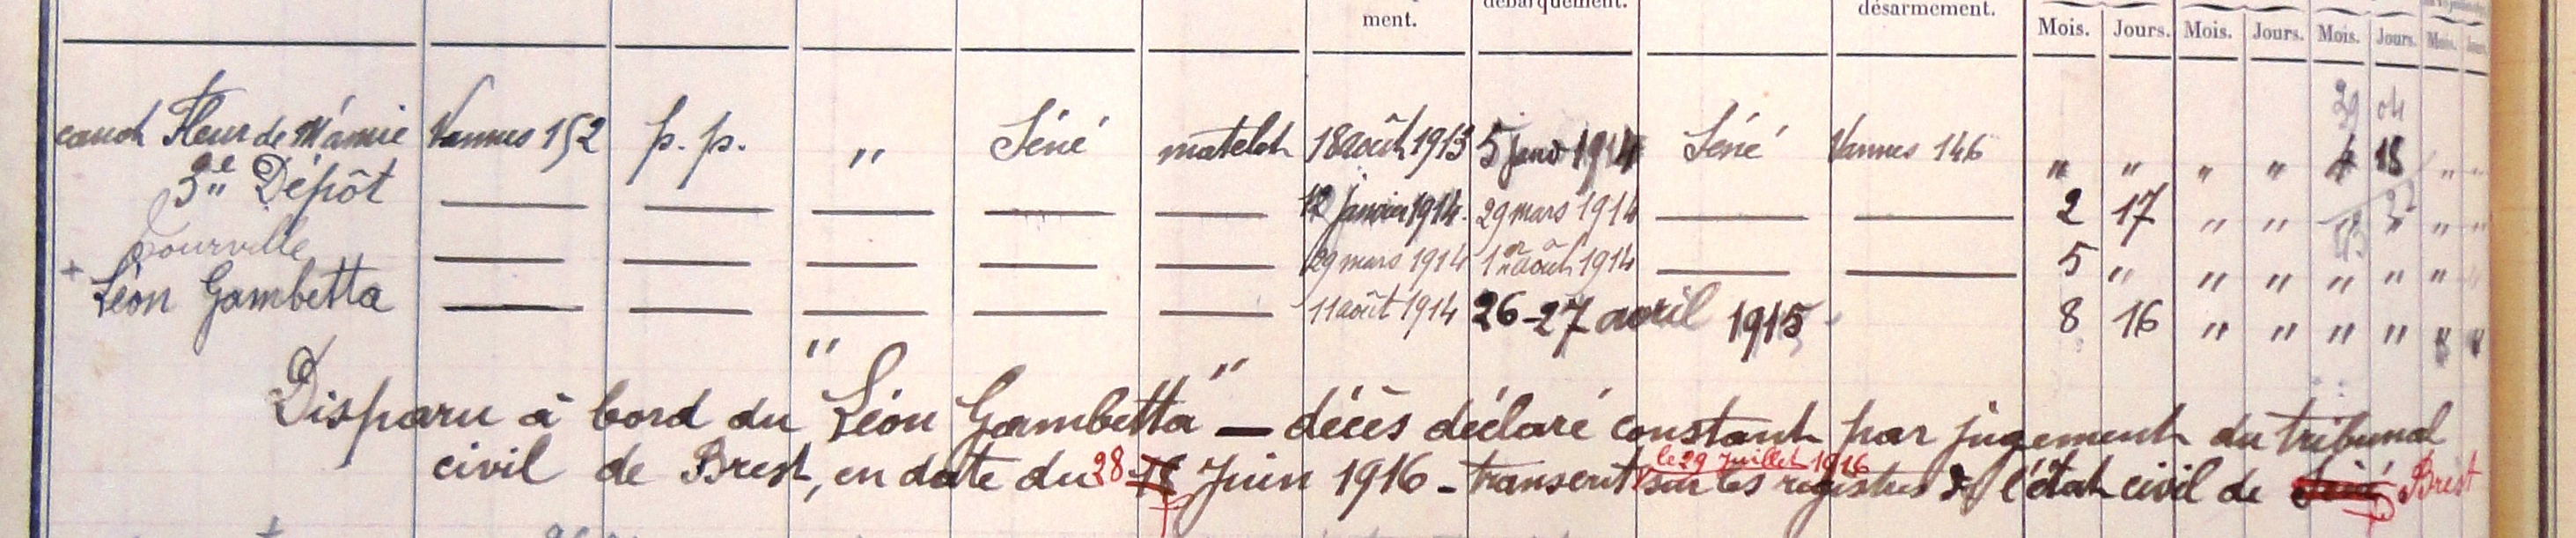 ment. débarquement. désarmement.
Mois. Jours. Mois. Jours. Mois. Jours. Mois. Jours.
39 04
canot Fleur de Mamie Vannes 152 p. p. " Séné matelot 18 août 1913 5 janv 1914 Séné Vannes 146 " " " " 4 18 " "
3e Dépôt — — — — — 12 janvier 1914. 29 mars 1914 — — 2 17 " " " "
Tourville — — — — — 29 mars 1914 1er août 1914 — — 5 " " " " " " "
+ Léon Gambetta — — — — — 11 août 1914 26-27 avril 1915 8 16 " " " " " "
Disparu à bord du "Léon Gambetta" — décès déclaré constant par jugement du tribunal
le 29 Juillet 1916
civil de Brest, en date du 28 Juin 1916 - transcrit sur les registres de l'état civil de Séné Brest